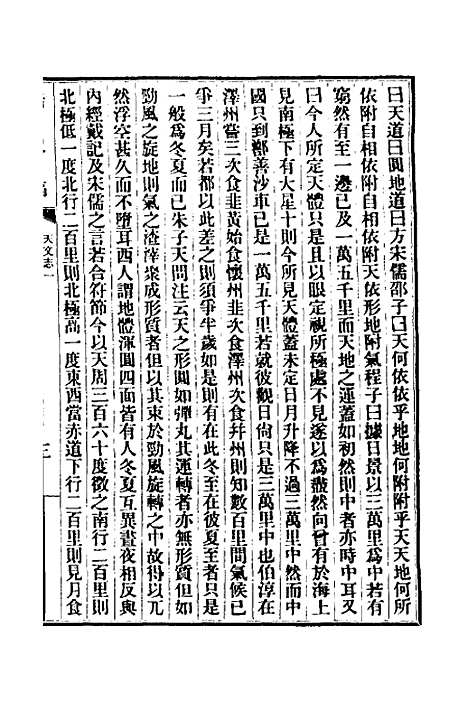 曰天道曰圓地道曰方宋儒邵子曰天何依依乎地地何附附乎天天地何所
依附自相依附自相依附天依形地附氣程子曰據日景以三萬里爲中若有
窮然有至一邊已及一萬五千里而天地之運蓋如初然則中者亦時中耳又
曰今人所定天體只是且以眼定視所極處不見遂以爲盡然向曾有於海上
見南極下有大星十則今所見天體蓋未定日月升降不過三萬里中然而中
國只到鄯善沙車已是一萬五千里若就彼觀日尙只是三萬里中也伯淳在
澤州嘗三次食韭黃始食懷州韭次食澤州次食幷州則知數百里間氣候已
爭三月矣若都以此差之則須爭半歲如是則有在此冬至在彼夏至者只是
一般爲冬夏而已朱子天問注云天之形圓如彈丸其運轉者亦無形質但如
勁風之旋地則氣之渣滓聚成形質者但以其束於勁風旋轉之中故得以兀
然浮空甚久而不墮耳西人謂地體渾圓四面皆有人冬夏互異晝夜相反與
內經戴記及宋儒之言若合符節今以天周三百六十度徵之南行二百里則
北極低一度北行二百里則北極高一度東西當赤道下行二百里則見月食
天文志一
三